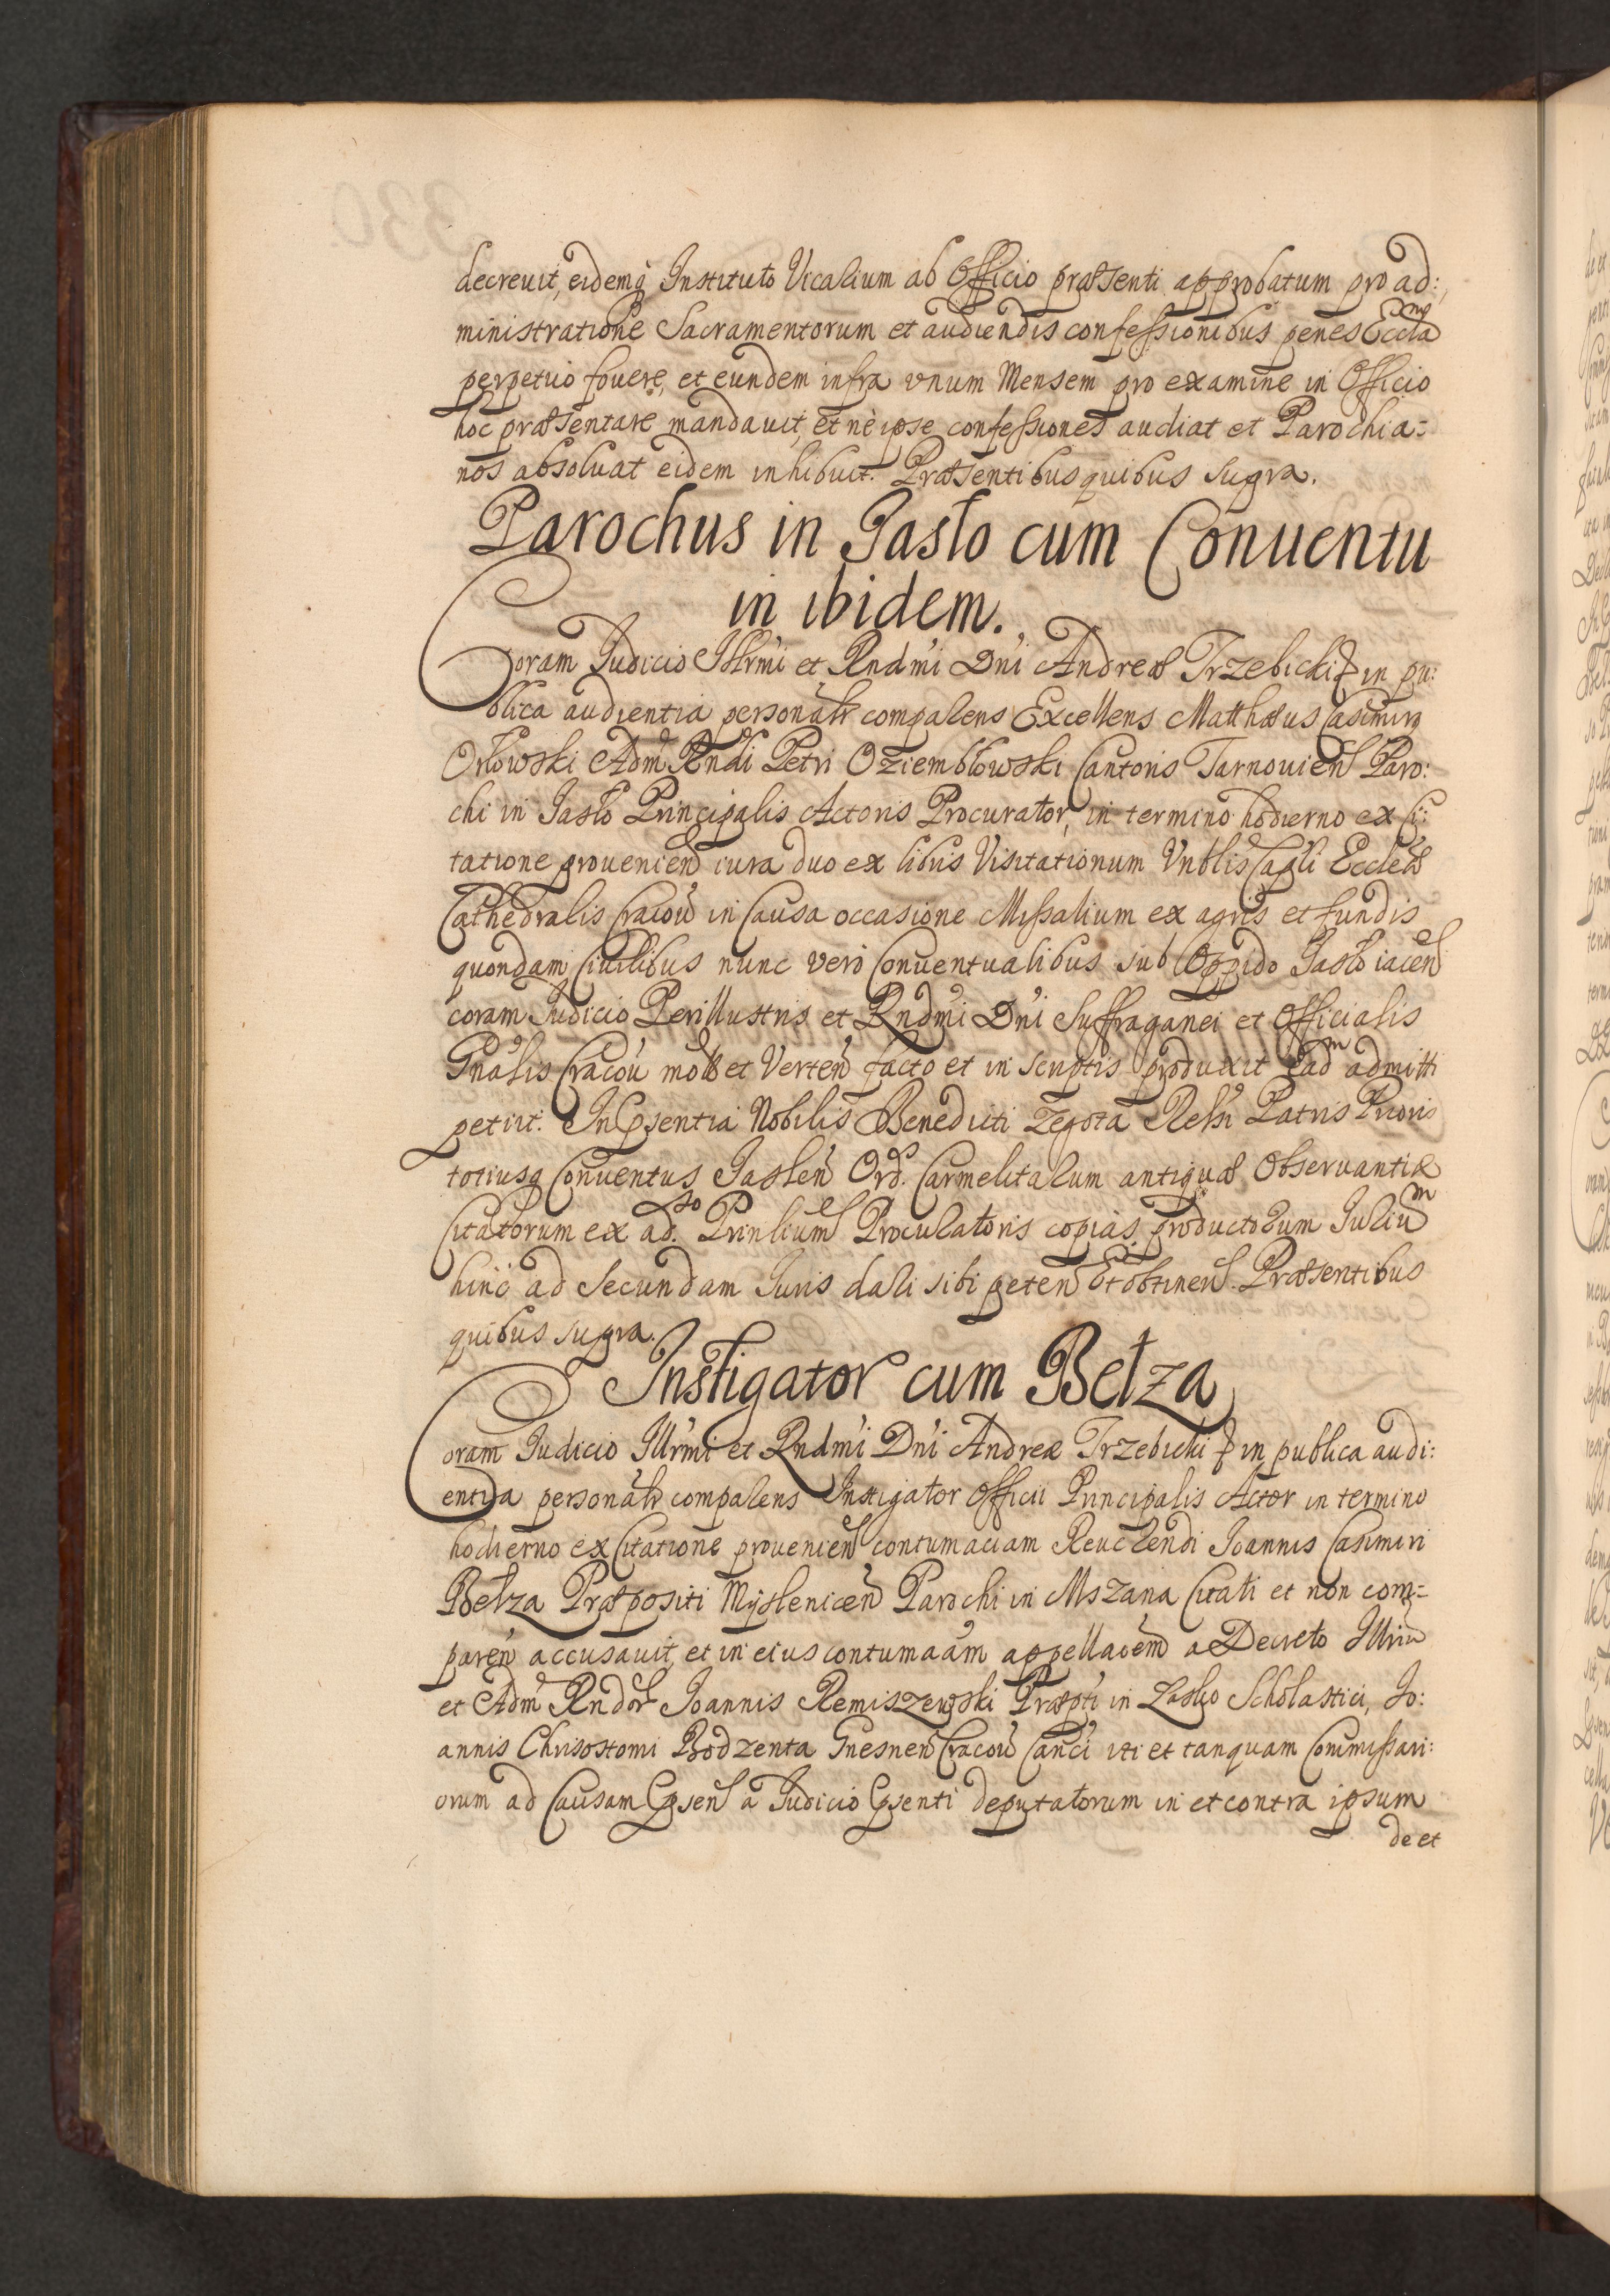 decreuit, eidemq Instituto Vicarium ab Officio præsenti approbatum pro ad:
ministratione Sacramentorum et audiendis confessionibus penes Eccła
perpetuo fouere, et eundem infra vnum Mensem pro examine in Officio
hoc præsentare mandauit, et nè ipse confessiones audiat et Parochia=
nos absoluat eidem inhibuit. Præsentibus quibus supra.
Parochus in Jasło cum Conuentu
in ibidem.
Coram Judicio Illrmi et Rndmi Dni Andreæ Trzebicki in pu:
blica audientia personalr comparens Excellens Matthæus Casimirg
Orłowski Adm Rndi Petri Oziembłowski Cantoris Tarnouien Paro:
chi in Jasło Principalis Actoris Procurator, in termino hodierno ex Ci:
tatione prouenien iura duo ex libris Visitationum Vnblis Capli Eccleæ
Cathedralis Cracou in Causa occasione Missalium ex agris et fundis
quondam Ciuilibus nunc verò Conuentualibus sub Oppido Jasło iacen
coram Judicio Perillustris et Rndmi Dni Suffraganei et Officialis
Gnalis Cracou mot et Verten facto et in scriptis produxit ead admitti
petiit. In Psentia Nobilis Benedicti Zegota Relsi Patris Prioris
totiusq Conuentus Jaslen Ord. Carmelitarum antiquæ Obseruantiæ
Citatorum ex ad. Prinlium Procuratoris copias productorum Iuriu
hinc ad Secundam Iuris dari sibi peten Et obtinen. Præsentibus
quibus supra.
Instigator cum Bełza
Coram Judicio Illrmi et Rndmi Dni Andreæ Trzebicki in publica audi:
entia personalr comparens Instigator Officii Principalis Actor in termino
hodierno ex Citatione prouenien contumaciam Reuerendi Joannis Casimiri
Bełza Præpositi Myslenicen Parochi in Mszana Citati et non com=
paren accusauit, et in eius contumaam appellacem a Decreto Illrm
et Adm Rndor Joannis Remiszewski Præpti in Łasko Scholastici, Jo:
annis Chrisostomi Bodzenta Gnesnen Cracou Canci iti et tanquam Commissari:
orum ad Causam Psen a Judicio Psenti deputatorum in et contra ipsum
de et